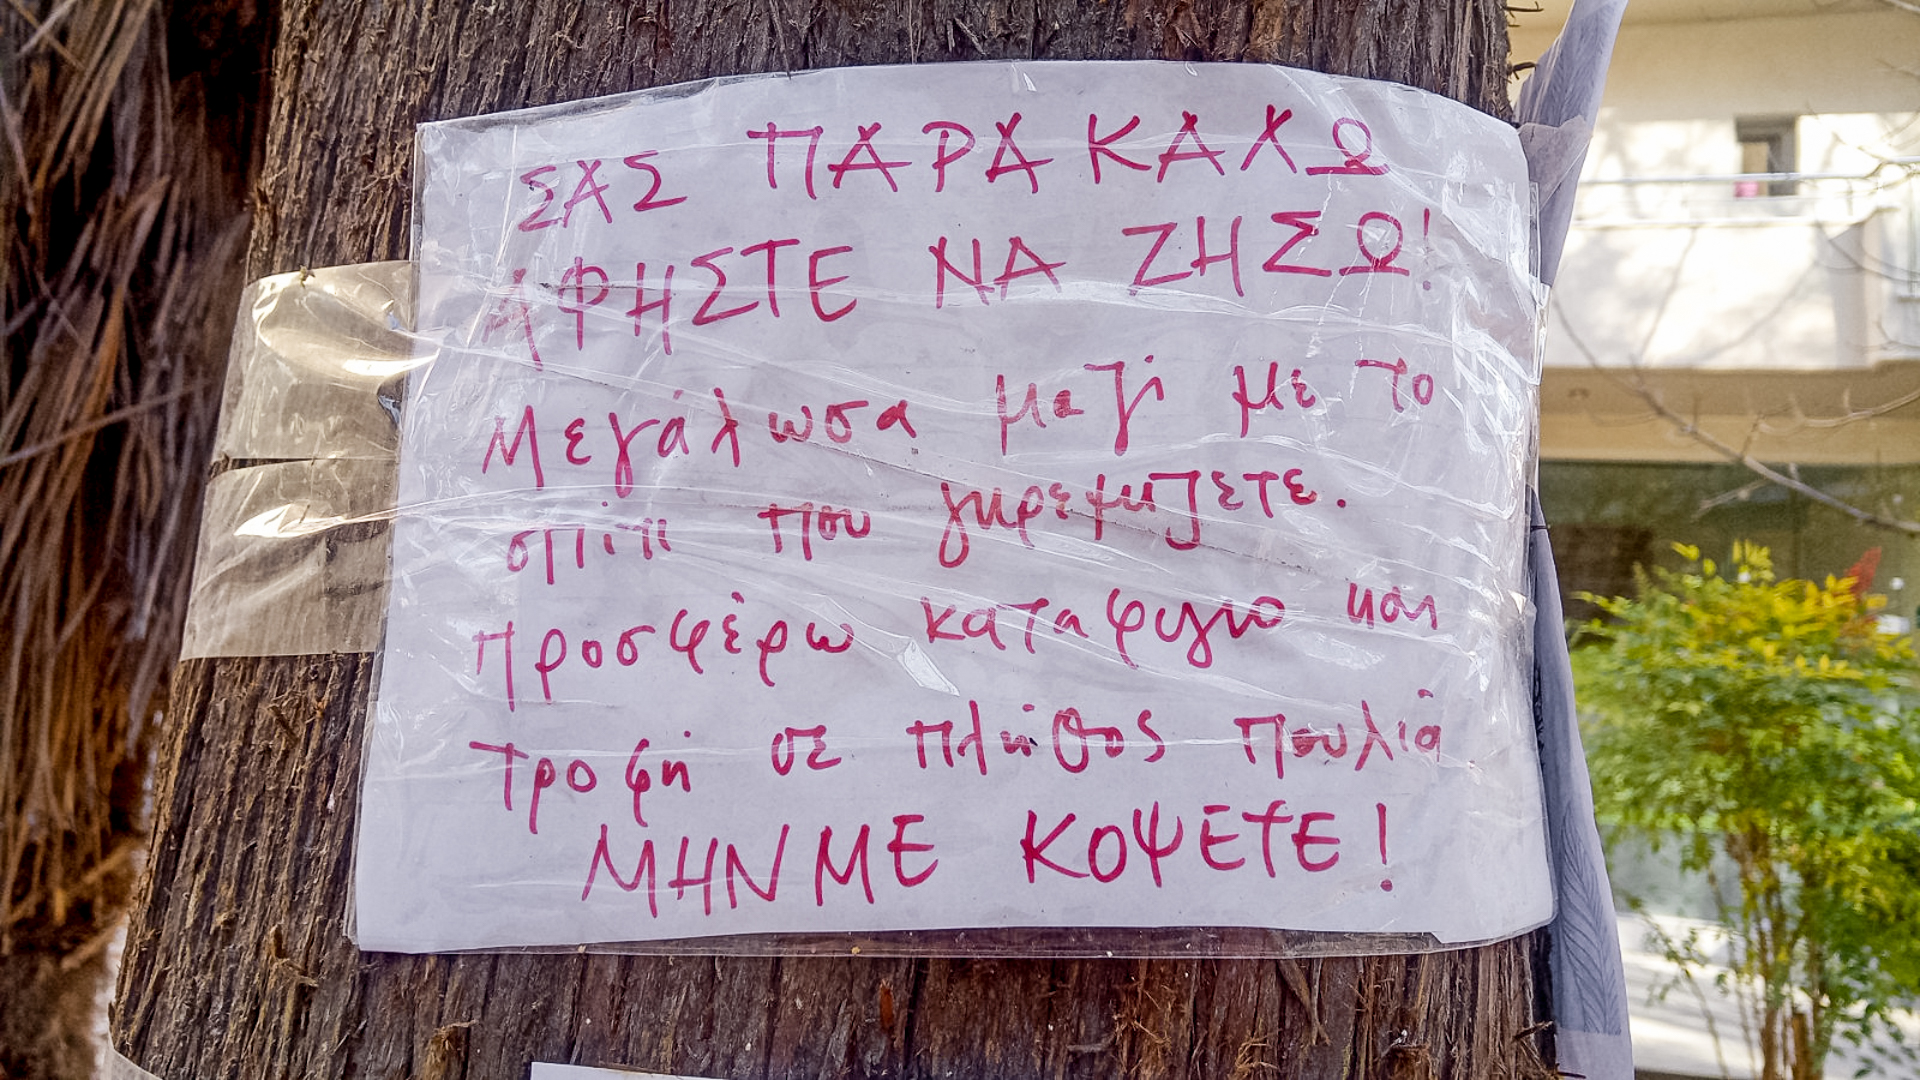 ΣΑΣ ΠΑΡΑΚΑΛΩ
ΑΦΗΣΤΕ ΝΑ ΖΗΣΩ!
Μεγάλωσα μαζί με το
σπίτι που γκρεμίζετε.
Προσφέρω καταφύγιο και
τροφή σε πλήθος πουλιά
ΜΗΝ ΜΕ ΚΟΨΕΤΕ!